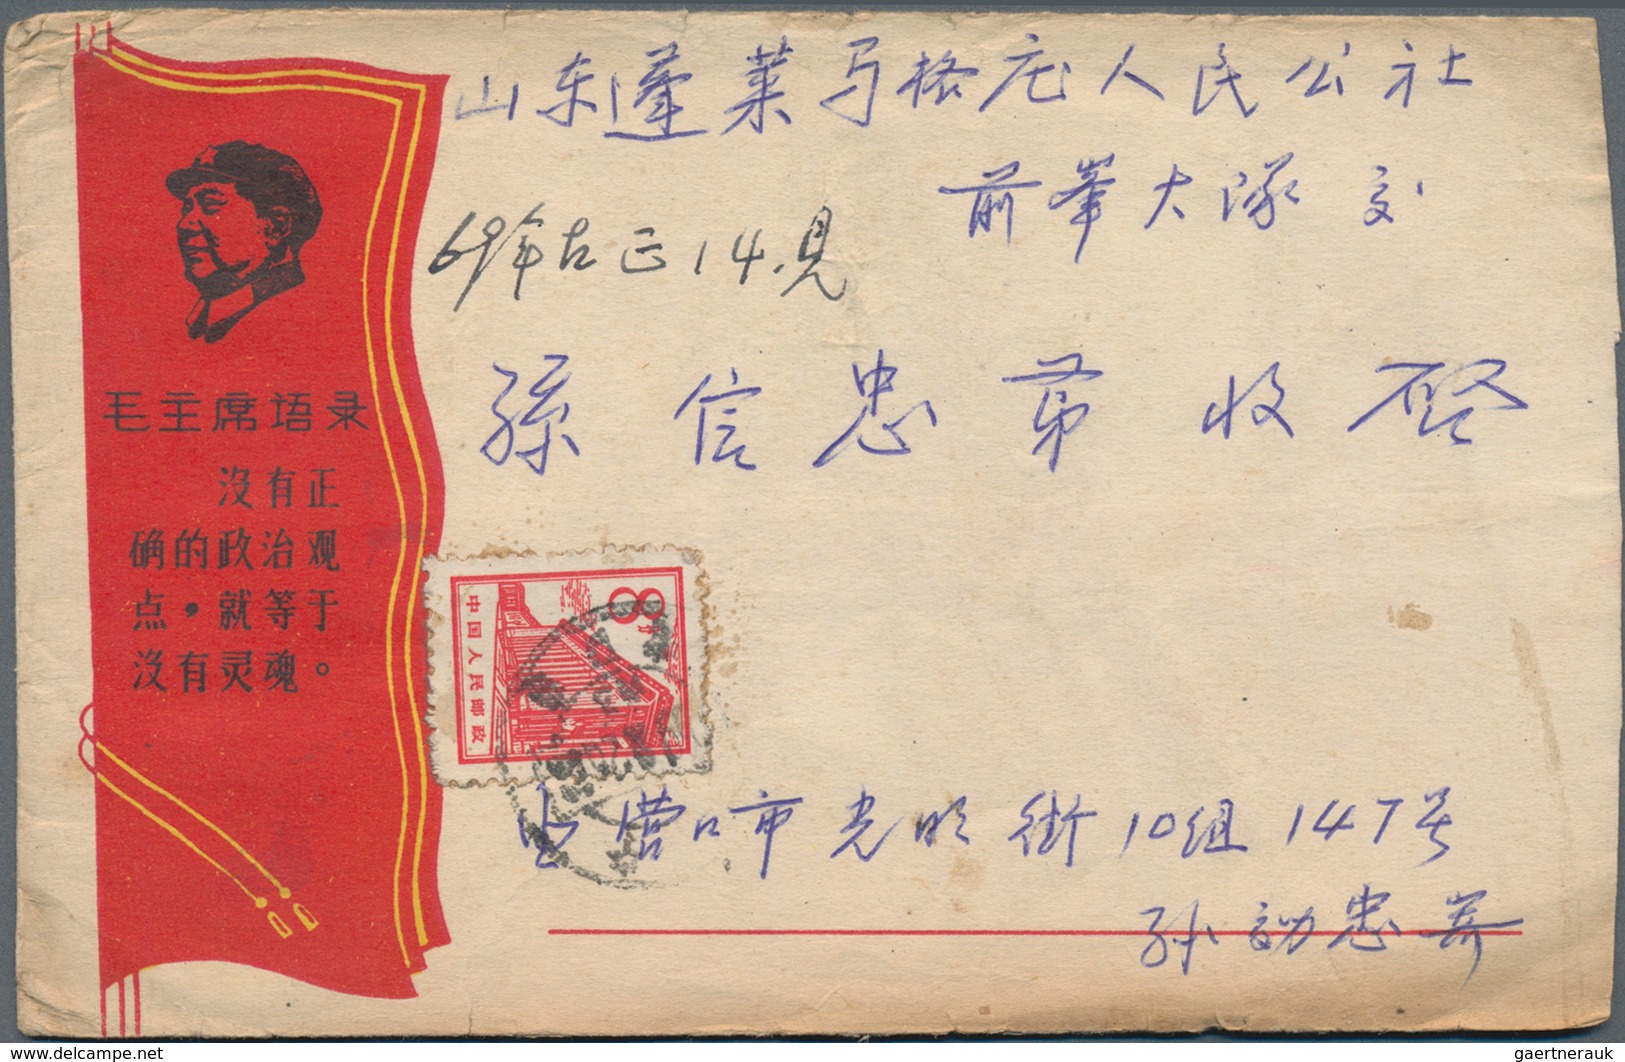 山东蓬莱马格庄人民公社
前峯大队交
69年古正14.見
孫信忠弟收啓
毛主席语录
沒有正
确的政治观
点·就等于
沒有灵魂。
8分
中国人民邮政
营口市光明街10组147号
孙効忠寄
www.delcampe.net
gaertnerauk